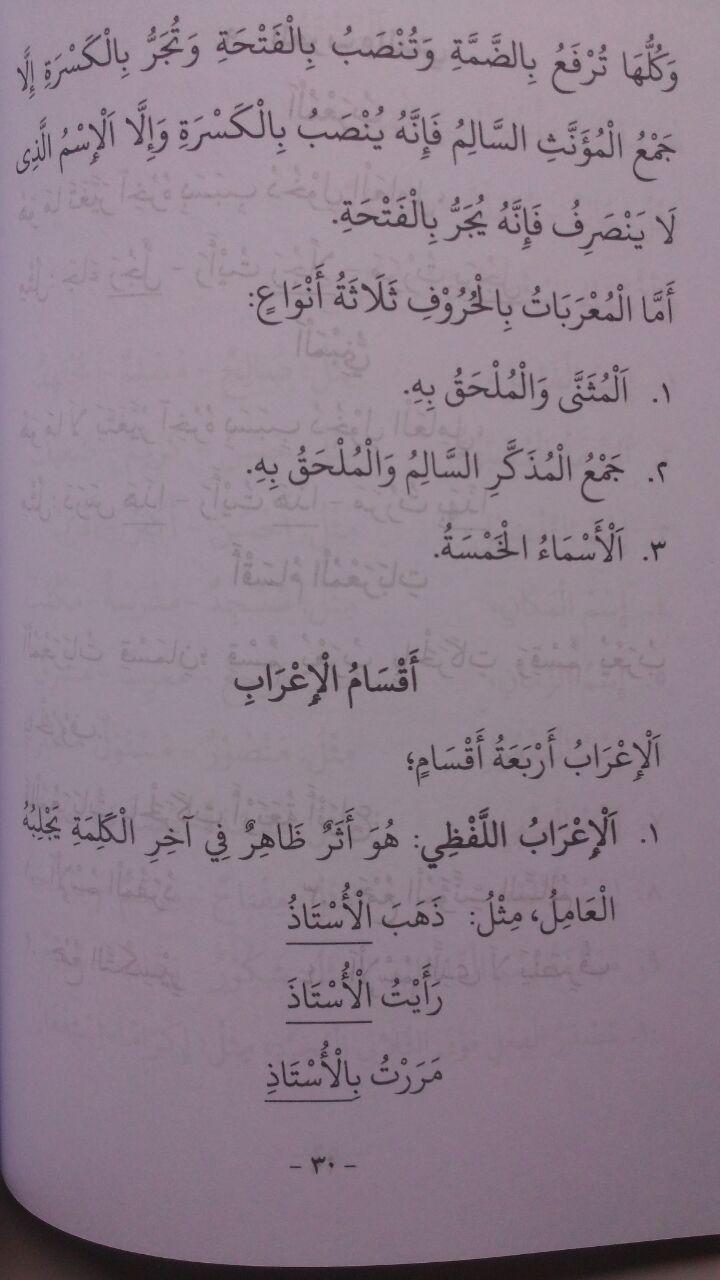 وَكُلُّهَا تُرْفَعُ بِالضَّمَّةِ وَتُنْصَبُ بِالْفَتْحَةِ وَتُجَرُّ بِالْكَسْرَةِ إِلَّا
جَمْعُ الْمُؤَنَّثِ السَّالِمُ فَإِنَّهُ يُنْصَبُ بِالْكَسْرَةِ وَإِلَّا اَلْإِسْمُ الَّذِى
لَا يَنْصَرِفُ فَإِنَّهُ يُجَرُّ بِالْفَتْحَةِ.
أَمَّا الْمُعْرَبَاتُ بِالْحُرُوْفِ ثَلَاثَةُ أَنْوَاعٍ:
١. اَلْمُثَنَّى وَالْمُلْحَقُ بِهِ.
٢. جَمْعُ الْمُذَكَّرِ السَّالِمُ وَالْمُلْحَقُ بِهِ.
٣. اَلْأَسْمَاءُ الْخَمْسَةُ.
أَقْسَامُ الْإِعْرَابِ
اَلْإِعْرَابُ أَرْبَعَةُ أَقْسَامٍ؛
١. اَلْإِعْرَابُ اللَّفْظِي: هُوَ أَثَرٌ ظَاهِرٌ فِي آخِرِ الْكَلِمَةِ يَجْلِبُهُ
الْعَامِلُ، مِثْلُ: ذَهَبَ الْأُسْتَاذُ
رَأَيْتُ الْأُسْتَاذَ
مَرَرْتُ بِالْأُسْتَاذِ
- ٣٠ -